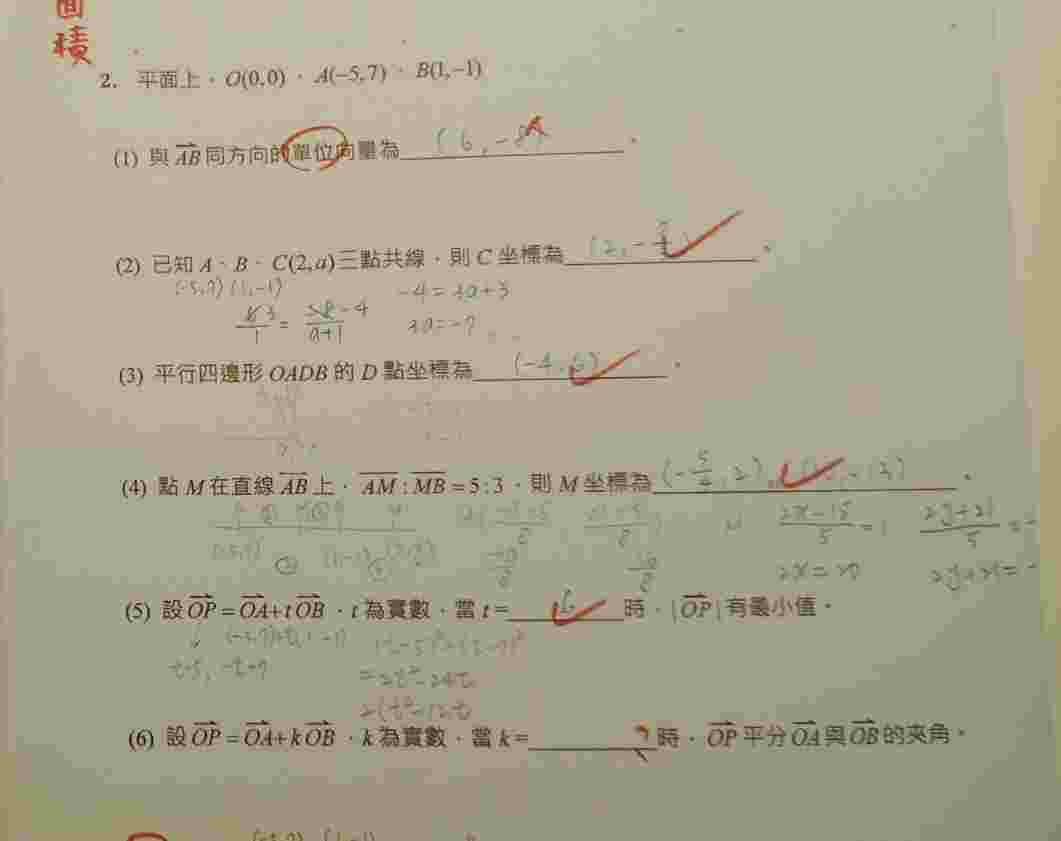 面
積
2. 平面上，O(0,0)、A(-5,7)、B(1,-1)
(1) 與 AB 同方向的單位向量為 (6,-8) 。
(2) 已知 A、B、C(2,a)三點共線，則 C 坐標為 (2,- 。
(-5,7) (1,-1) -4=3a+3
3a=-7
(3) 平行四邊形 OADB 的 D 點坐標為 (-4,6) 。
(4) 點 M 在直線 AB 上，AM : MB = 5:3，則 M 坐標為 (-5/4, 2), -13) 。
2x-15/5 = 2y+21/5 =
2x=20 2y+21=-
(5) 設 OP = OA + t OB，t 為實數，當 t = 6 時，|OP| 有最小值。
t-5, -t+7 =2t²-24t
2(t²-12t
(6) 設 OP = OA + k OB，k 為實數，當 k = ? 時，OP 平分 OA 與 OB 的夾角。